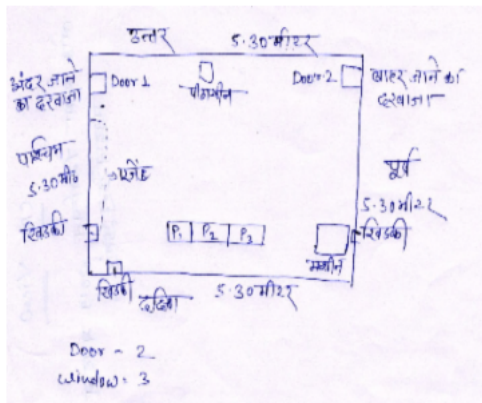 उत्तर 5.30 मीटर
अंदर जाने
का दरवाजा
Door 1
पीठासीन
Door-2
बाहर जाने का
दरवाजा
पश्चिम
5.30 मी०
एजेंट
पूर्व
5.30 मीटर
खिडकी
P1 P2 P3
मशीन
खिडकी
खिडकी
दक्षिण 5.30 मीटर
Door - 2
window - 3